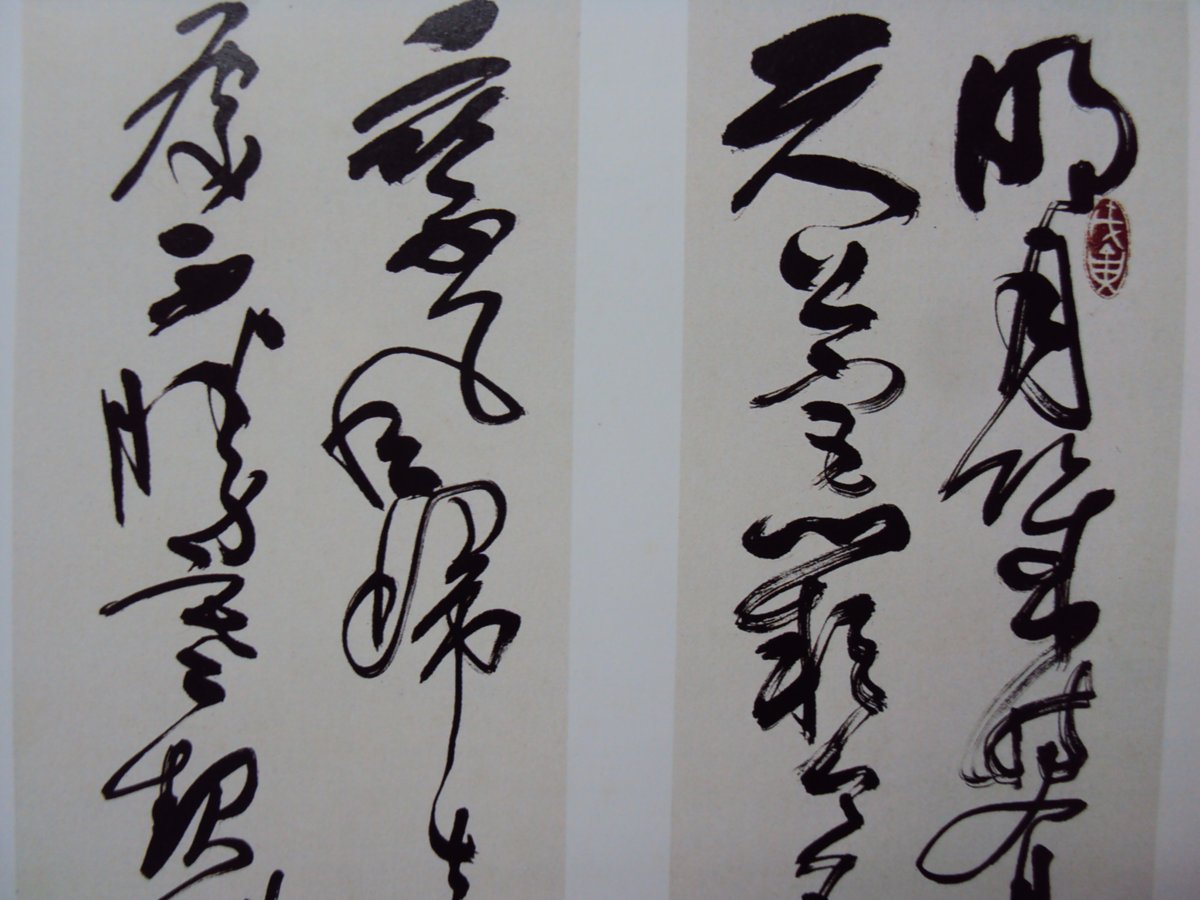 明月幾時有
天上宮闕今夕
風歸去
處不勝寒起